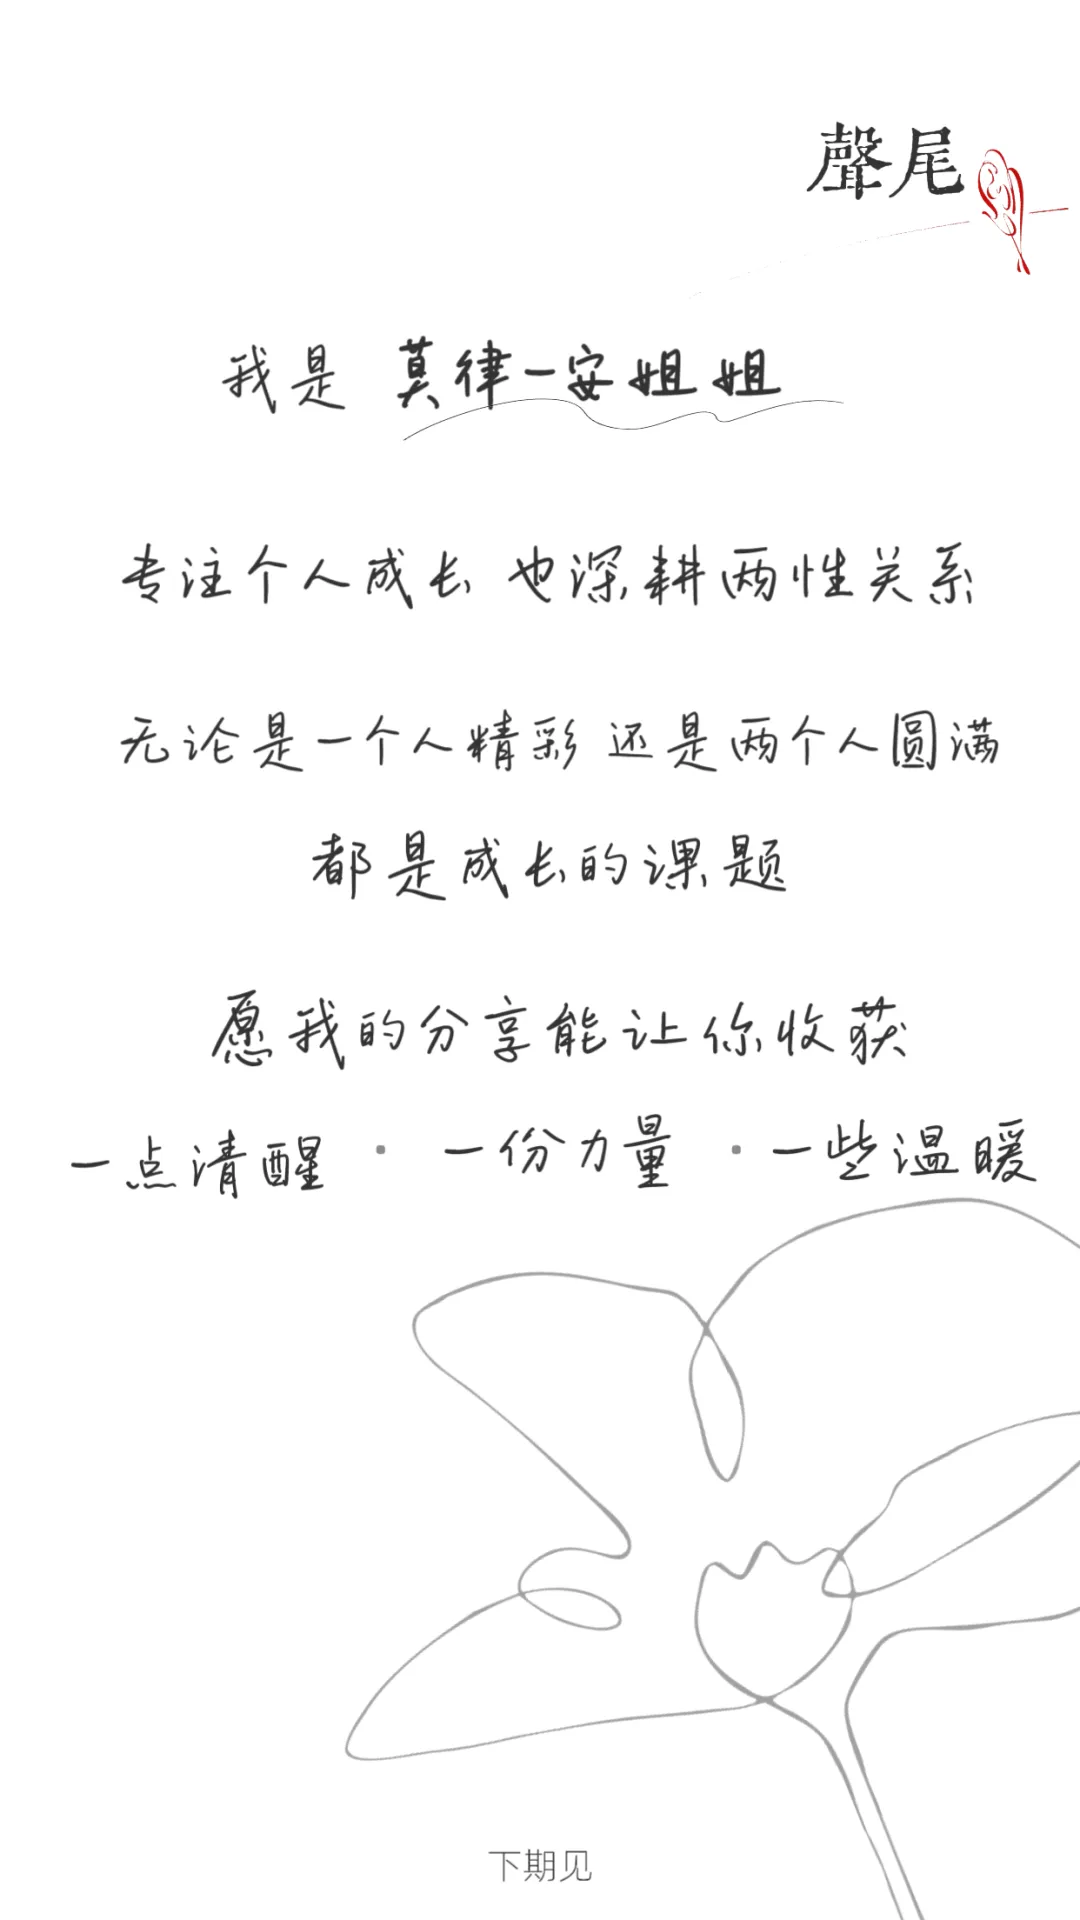 聲尾
我是 莫律一安姐姐
专注个人成长 也深耕两性关系
无论是一个人精彩 还是两个人圆满
都是成长的课题
愿我的分享能让你收获
一点清醒 · 一份力量 · 一些温暖
下期见